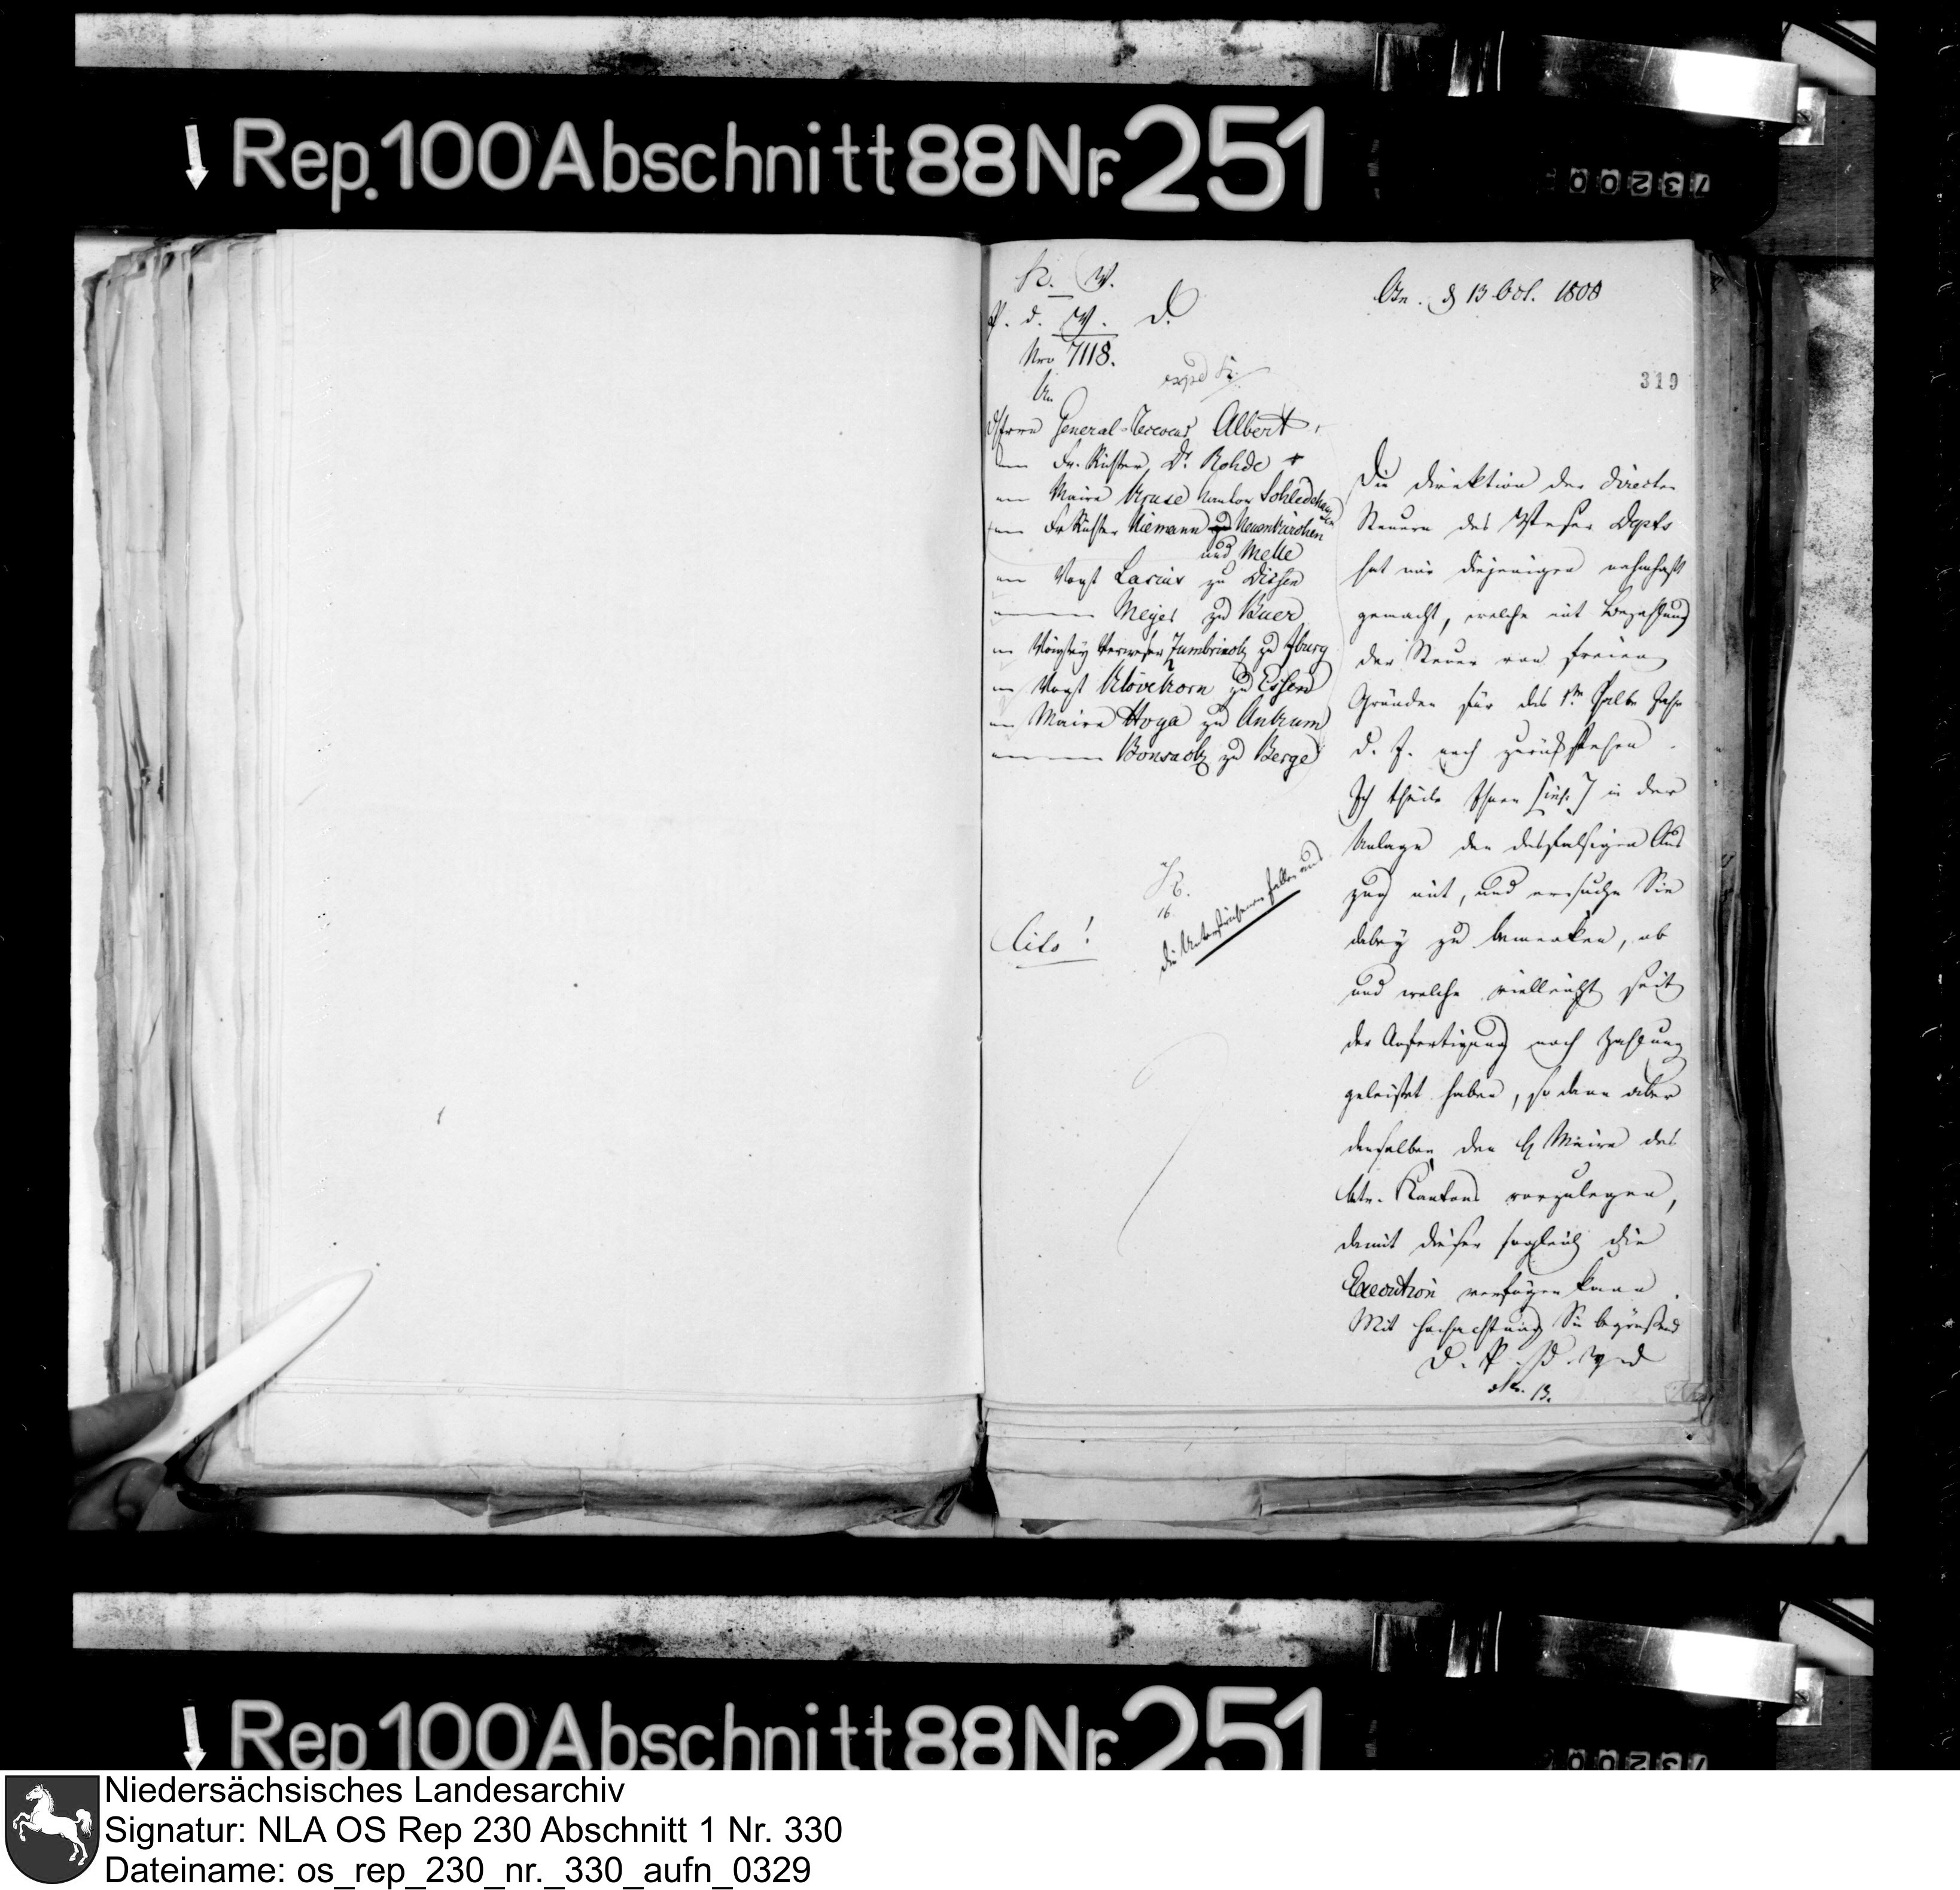 Rep. 100 Abschnitt 88 Nr. 251
00237
K. W.
P. d. W. D.
Nro 7118.
Osn. d 13 Oct. 1808
319
An
General-Receveur Albert,
Fr. Richter Dr. Rohde
Maire Kruse Kanton Schledehausen
Fr Richter Niemann zu Neuenkirchen
und Melle
Vogt Lasius zu Dissen
Meyer zu Buer
Vogtey Verweser Jumbrinck zu Iburg
Vogt Klövekorn zu Essen
Maire Hoya zu Ankum
Bonsack zu Berge
Cito!
16.
die Unterstrichenen fallen aus
Die Direktion der directen
Steuern des Weser Depts
hat mir diejenigen nahmhaft
gemacht, welche mit Bezahlung
der Steuer von freien
Gründen für das 1te halbe Jahr
d. J. noch zurückstehen.
Ich theile Ihnen in der
Anlage den desfalsigen Aus
zug mit, und ersuche Sie
dabey zu bemerken, ob
und welche vielleicht seit
der Anfertigung noch Zahlung
geleistet haben, so dann aber
denselben den H Maire des
Kantons vorzulegen,
damit dieser sogleich die
Execution verfügen kann.
Mit Hochachtung Sie begrüßend
D. P. d. W. D
13.
Rep. 100 Abschnitt 88 Nr. 251
00237
Niedersächsisches Landesarchiv
Signatur: NLA OS Rep 230 Abschnitt 1 Nr. 330
Dateiname: os_rep_230_nr._330_aufn_0329